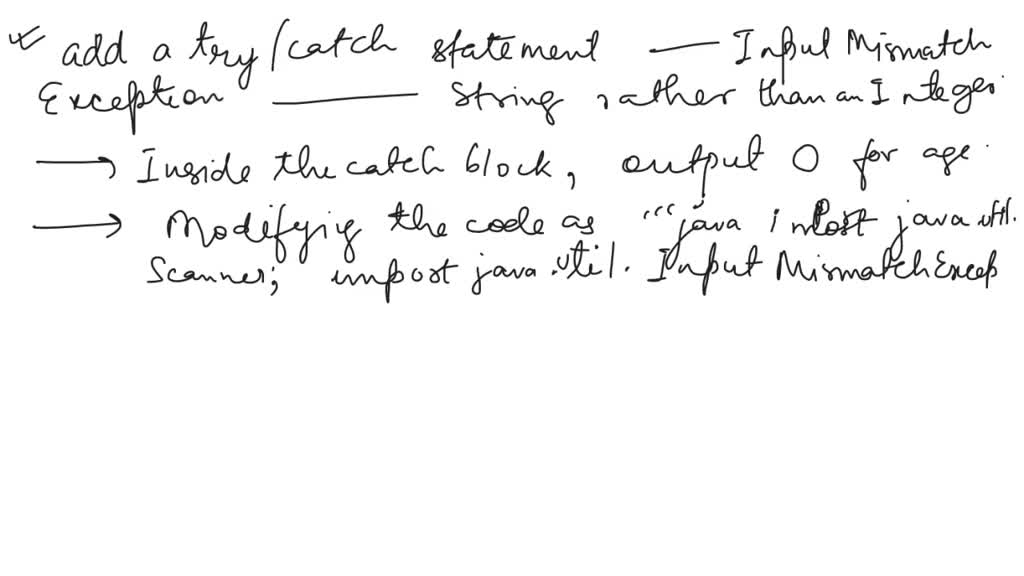 add a try/catch statement — Input Mismatch
Exception — String rather than an Integer
→ Inside the catch block, output 0 for age.
→ Modifying the code as "'java import java.util.
Scanner; import java.util. Input MismatchExcep